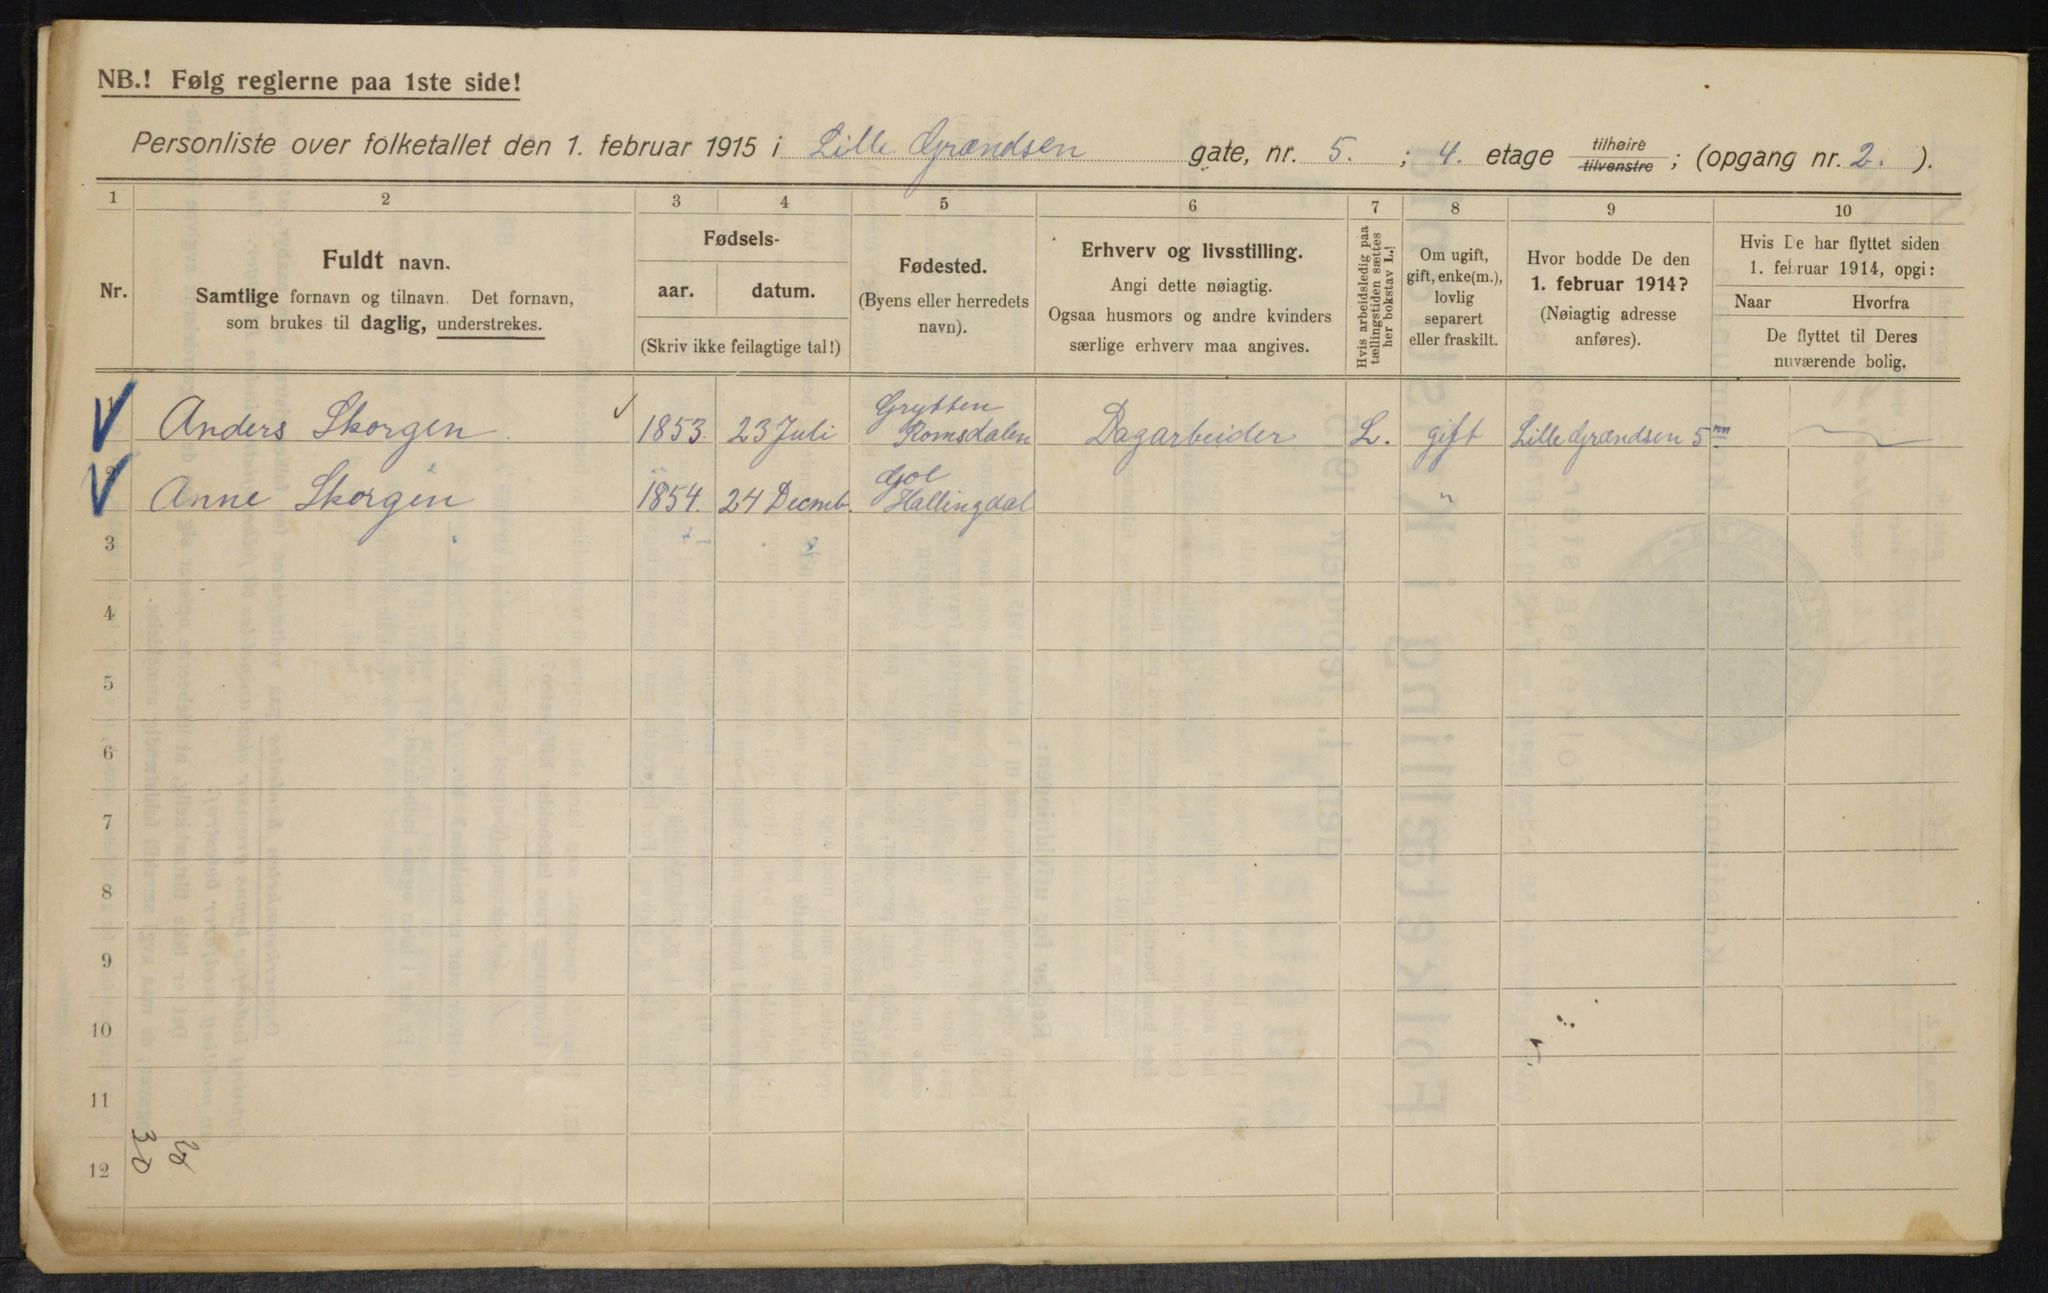 NB.! Følg reglerne paa 1ste side!
Personliste over folketallet den 1. februar 1915 i Lille Grændsen gate, nr. 5. ; 4. etage tilhøire tilvenstre ; (opgang nr. 2. ).
1 2 3 4 5 6 7 8 9 10
Nr.
Fuldt navn.
Samtlige fornavn og tilnavn. Det fornavn,
som brukes til daglig, understrekes.
Fødsels-
aar. datum.
(Skriv ikke feilagtige tal!)
Fødested.
(Byens eller herredets
navn).
Erhverv og livsstilling.
Angi dette nøiagtig.
Ogsaa husmors og andre kvinders
særlige erhverv maa angives.
Hvis arbeidsledig paa
tællingstiden sættes
her bokstav L.!
Om ugift,
gift, enke(m.),
lovlig
separert
eller fraskilt.
Hvor bodde De den
1. februar 1914?
(Nøiagtig adresse
anføres).
Hvis De har flyttet siden
1. februar 1914, opgi:
Naar Hvorfra
De flyttet til Deres
nuværende bolig.
1 Anders Skorgen 1853. 23 Juli Grytten Romsdalen Dagarbeider L. gift Lille Grændsen 5
2 Anne Skorgen 1854. 24 Decmb. Gol Hallingdal "
3
4
5
6
7
8
9
10
11
12